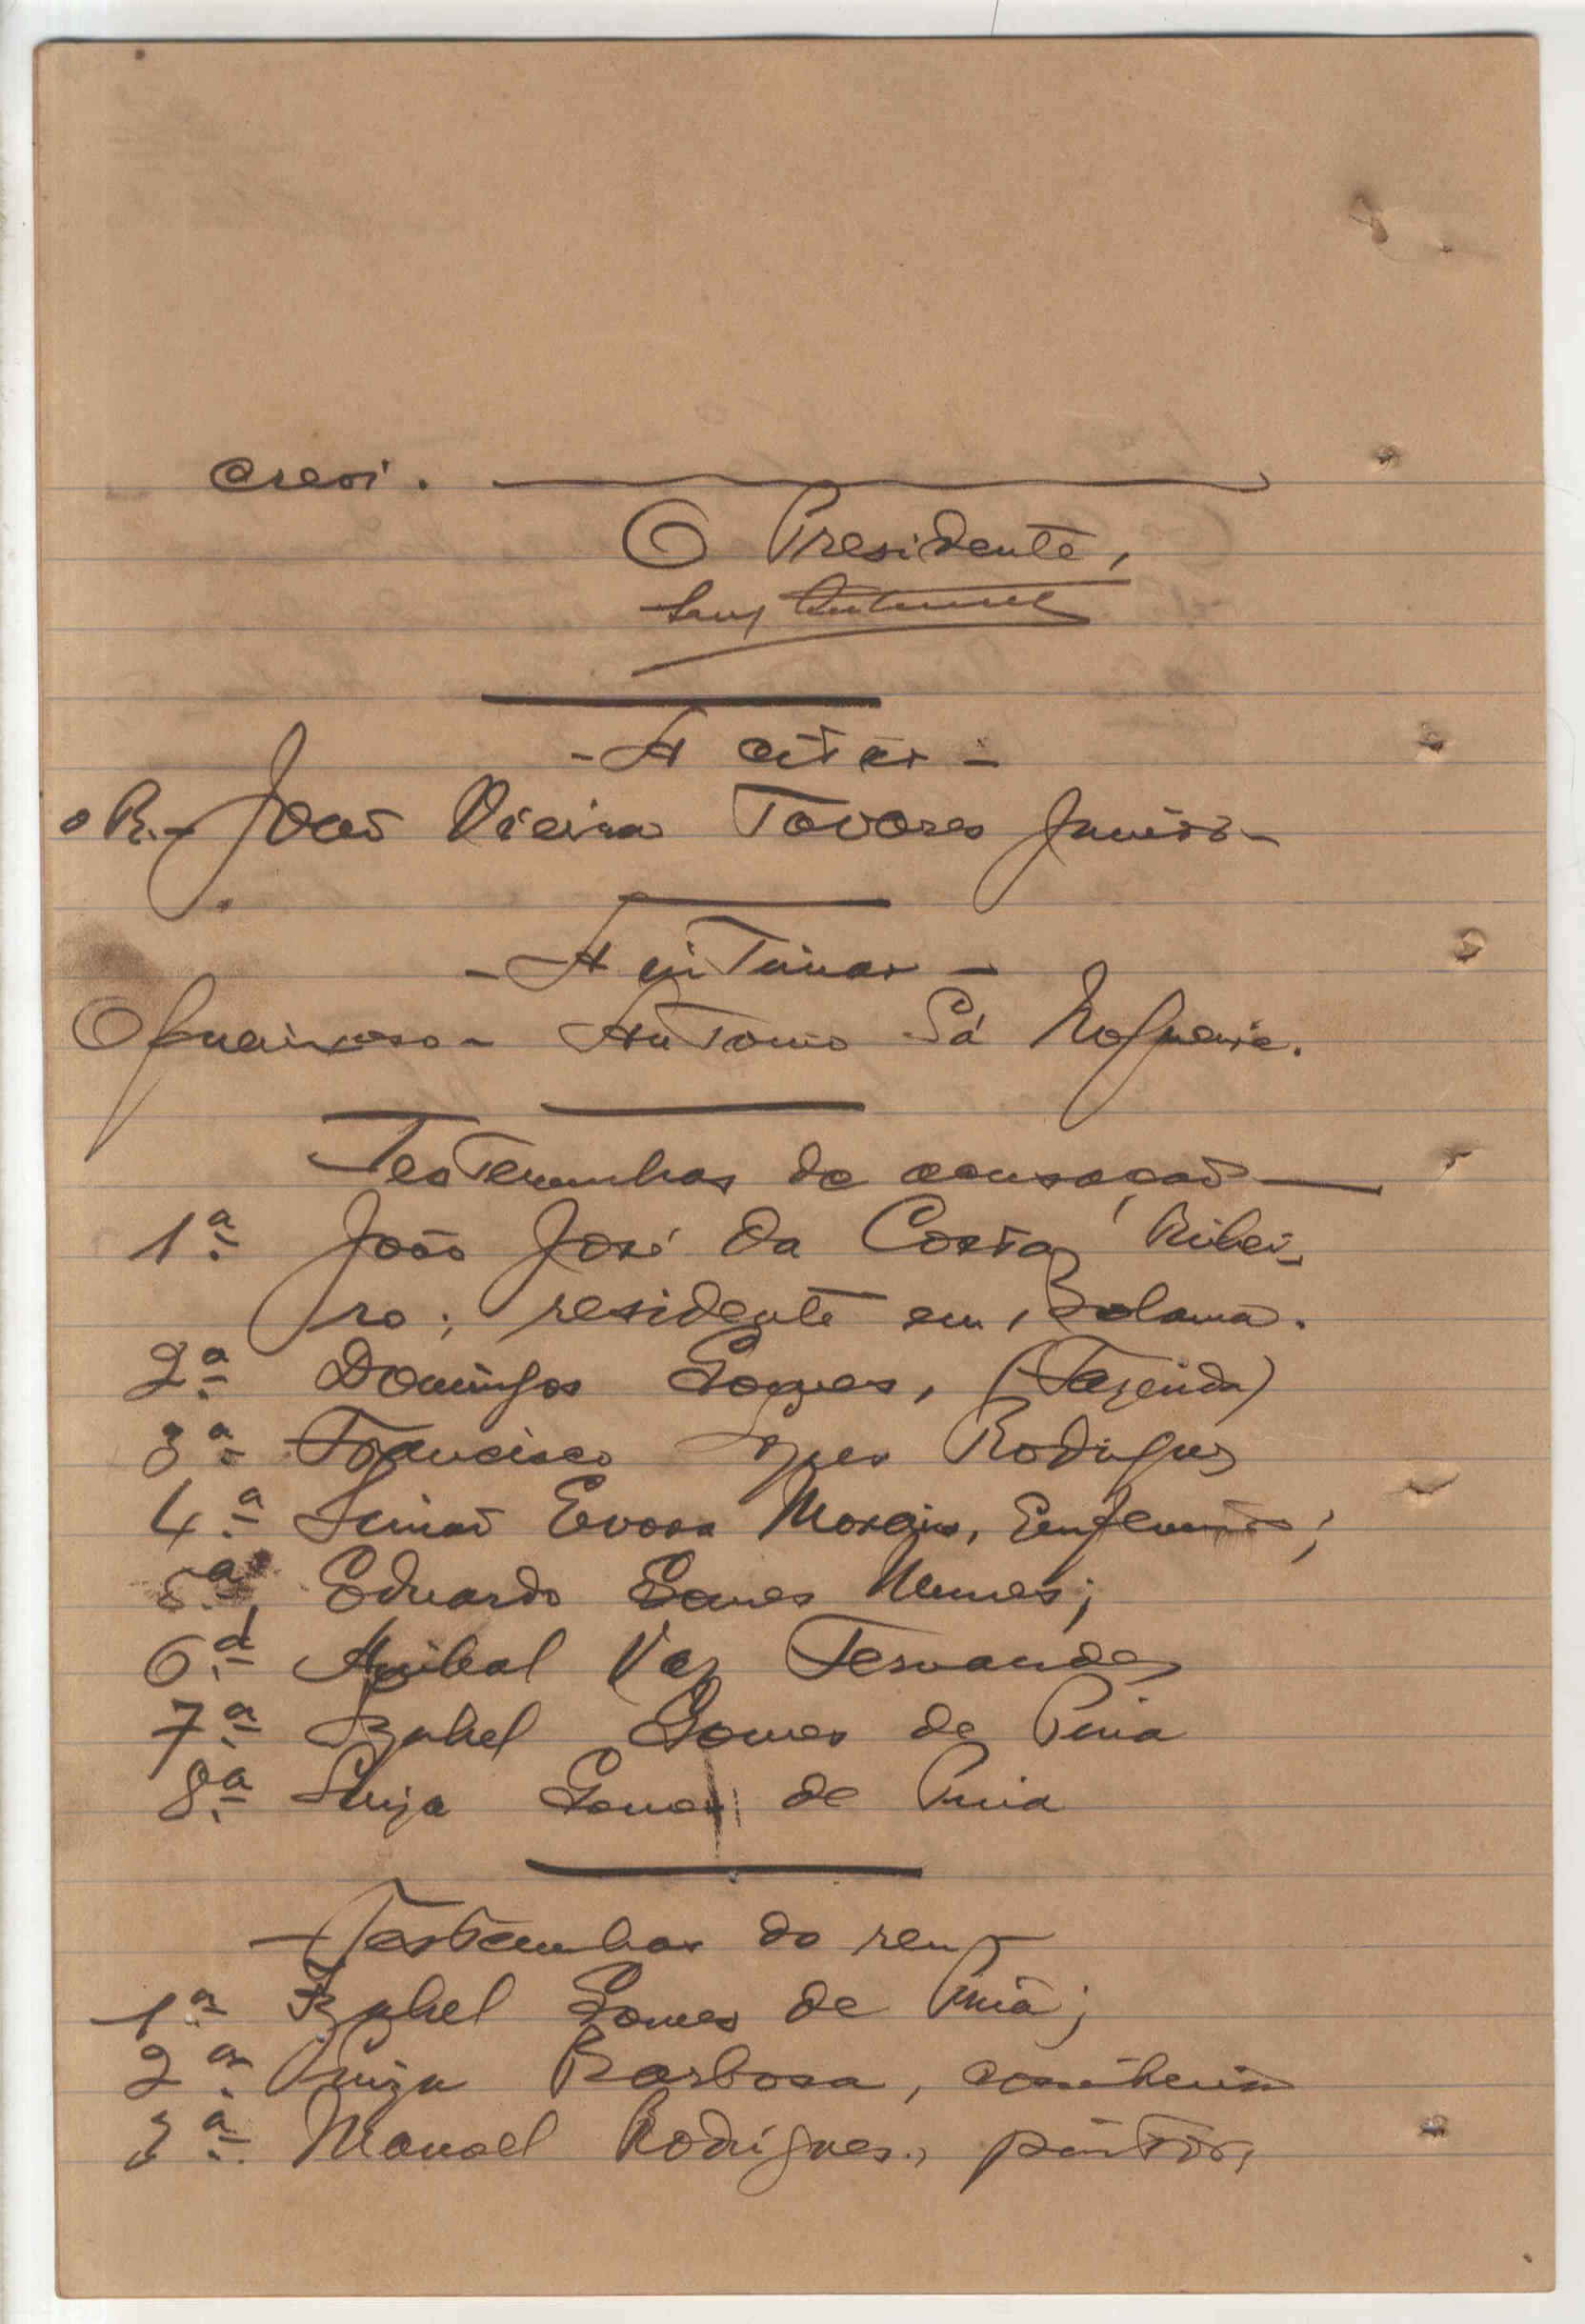 crevi.
O Presidente,
- A citar -
o R. - João Vieira Tavares Junior -
- A intimar -
O queixoso - Antonio Sá Nogueira.
Testemunhas de acusação
1ª João José da Costa Ribei-
ro; residente em Bolama.
2ª Domingos Gomes, (Fazenda)
3ª Francisco Lopes Rodrigues
4ª Simão Evora Morais, Enfermeiro;
5ª Eduardo Gomes Nunes;
6ª Anibal Vaz Fernandes
7ª Izabel Gomes de Pina
8ª Luiza Gomes de Pina
Testemunhas do reu
1ª Izabel Gomes de Pina;
2ª Luiza Barbosa, cosinheira
3ª Manoel Rodrigues, pintor,